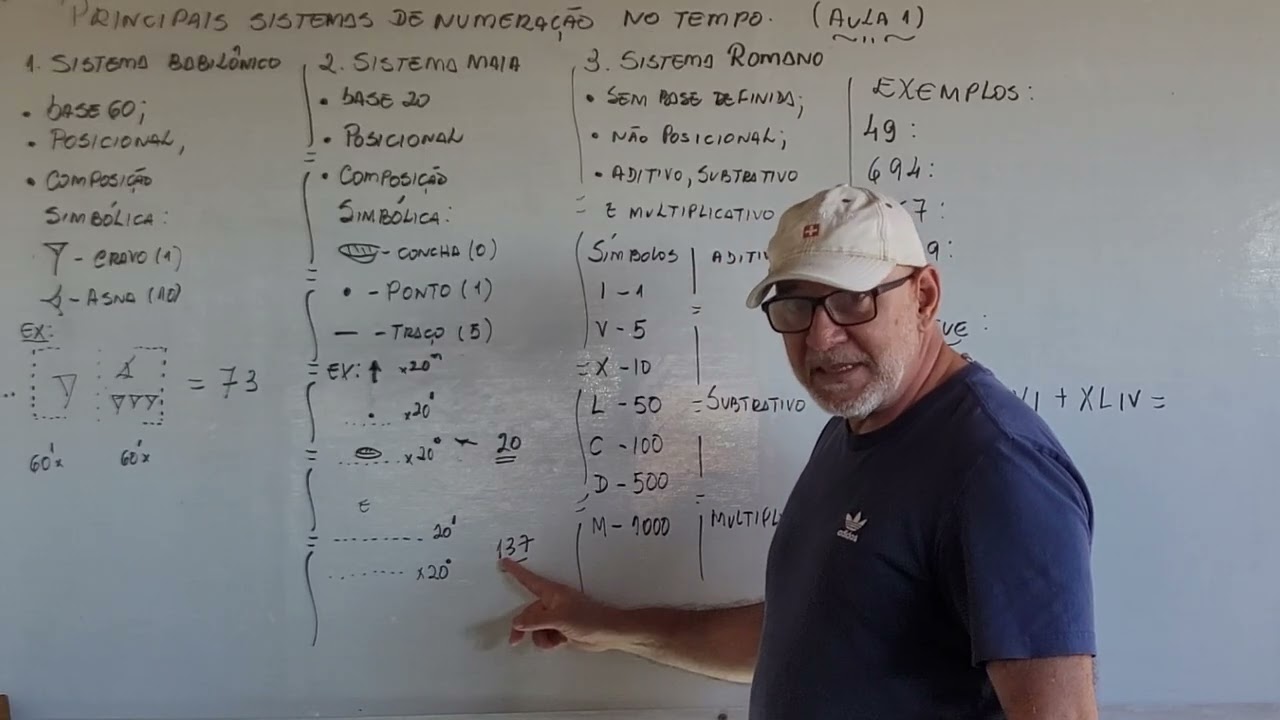 PRINCIPAIS SISTEMAS DE NUMERAÇÃO NO TEMPO. (AULA 1)
1. SISTEMA BABILÔNICO
• BASE 60;
• POSICIONAL,
• COMPOSIÇÃO
SIMBÓLICA:
- CRAVO (1)
- ASNA (10)
EX:
= 73
60¹x
60¹x
2. SISTEMA MAIA
• BASE 20
• POSICIONAL
• COMPOSIÇÃO
SIMBÓLICA:
- CONCHA (0)
• - PONTO (1)
— - TRAÇO (5)
EX: ↑ x20ⁿ
x20¹
x20⁰ 20
E
20¹
137
x20⁰
3. SISTEMA ROMANO
• SEM BASE DEFINIDA;
• NÃO POSICIONAL;
• ADITIVO, SUBTRATIVO
E MULTIPLICATIVO
SÍMBOLOS
I - 1
V - 5
X - 10
L - 50
C - 100
D - 500
M - 1000
ADITI
SUBTRATIVO
MULTIPL
EXEMPLOS:
49:
694:
7:
9:
VE:
VI + XLIV =
adidas